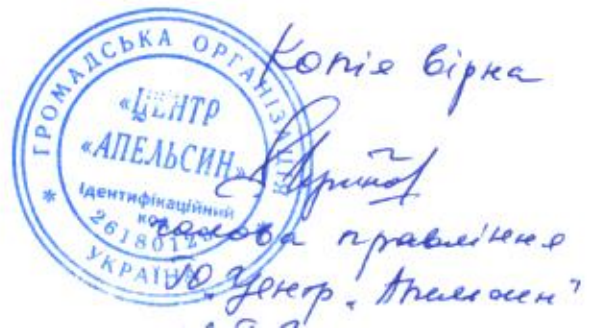 ГРОМАДСЬКА ОРГАНІЗАЦІЯ
«ЦЕНТР
«АПЕЛЬСИН»
Ідентифікаційний
код
УКРАЇНА
Копія вірна
голова правління
ГО "Центр "Апельсин"